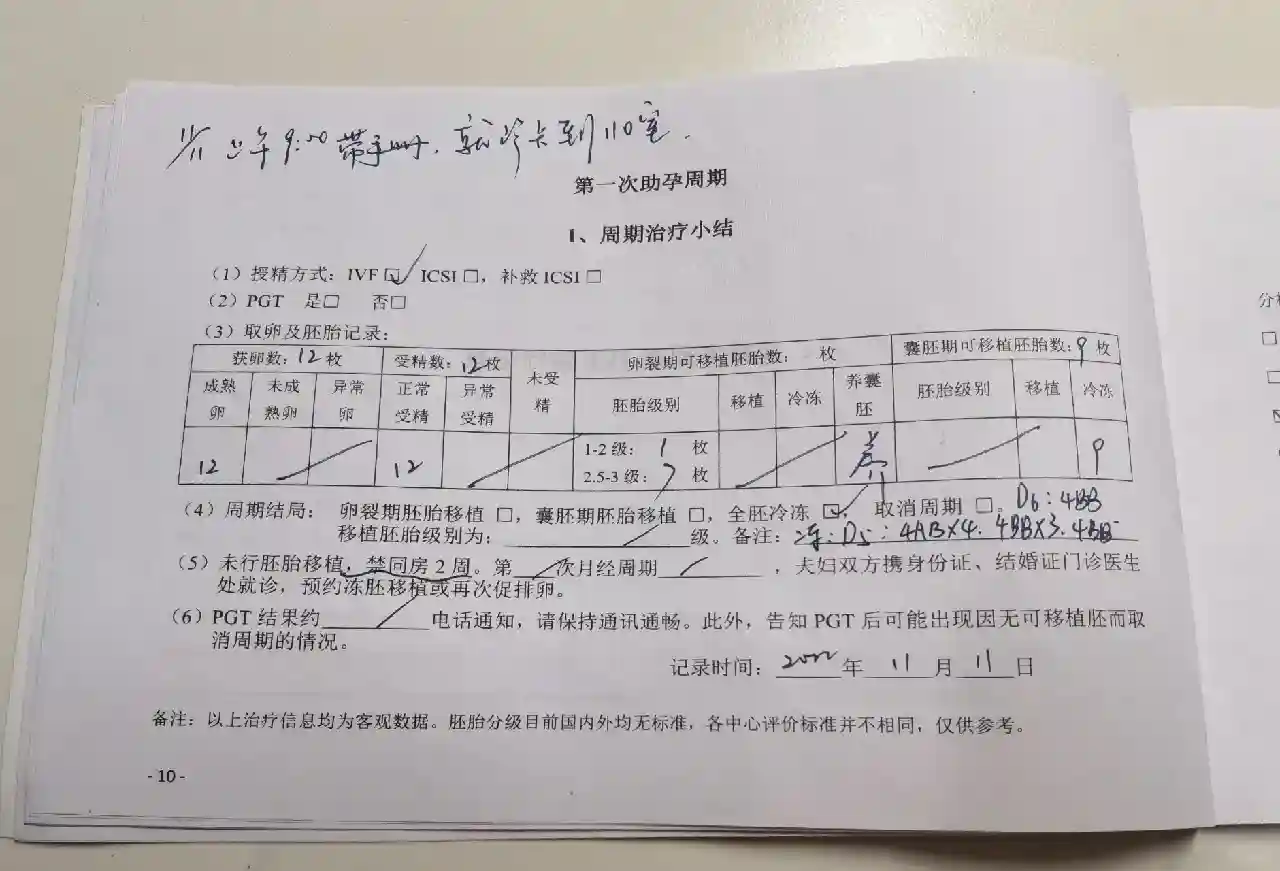 11/11 上午9:00带手册，就诊卡到110室.
第一次助孕周期
1、周期治疗小结
（1）授精方式：IVF☑ ICSI□，补救ICSI□
（2）PGT 是□ 否□
（3）取卵及胚胎记录：
获卵数：12枚 受精数：12枚 未受精 卵裂期可移植胚胎数： 枚 囊胚期可移植胚胎数：9枚
成熟卵 未成熟卵 异常卵 正常受精 异常受精 胚胎级别 移植 冷冻 养囊胚 胚胎级别 移植 冷冻
12 12 1-2级：1枚 养 9
2.5-3级：7枚
（4）周期结局： 卵裂期胚胎移植□，囊胚期胚胎移植□，全胚冷冻☑，取消周期□。D6：4BB
移植胚胎级别为：级。备注：冻：D5：4AB×4. 4BB×3. 4BB⁻
（5）未行胚胎移植，禁同房2周。第 次月经周期 ，夫妇双方携身份证、结婚证门诊医生
处就诊，预约冻胚移植或再次促排卵。
（6）PGT结果约 电话通知，请保持通讯通畅。此外，告知PGT后可能出现因无可移植胚而取
消周期的情况。
记录时间：2022年 11 月 11 日
备注：以上治疗信息均为客观数据。胚胎分级目前国内外均无标准，各中心评价标准并不相同，仅供参考。
- 10 -